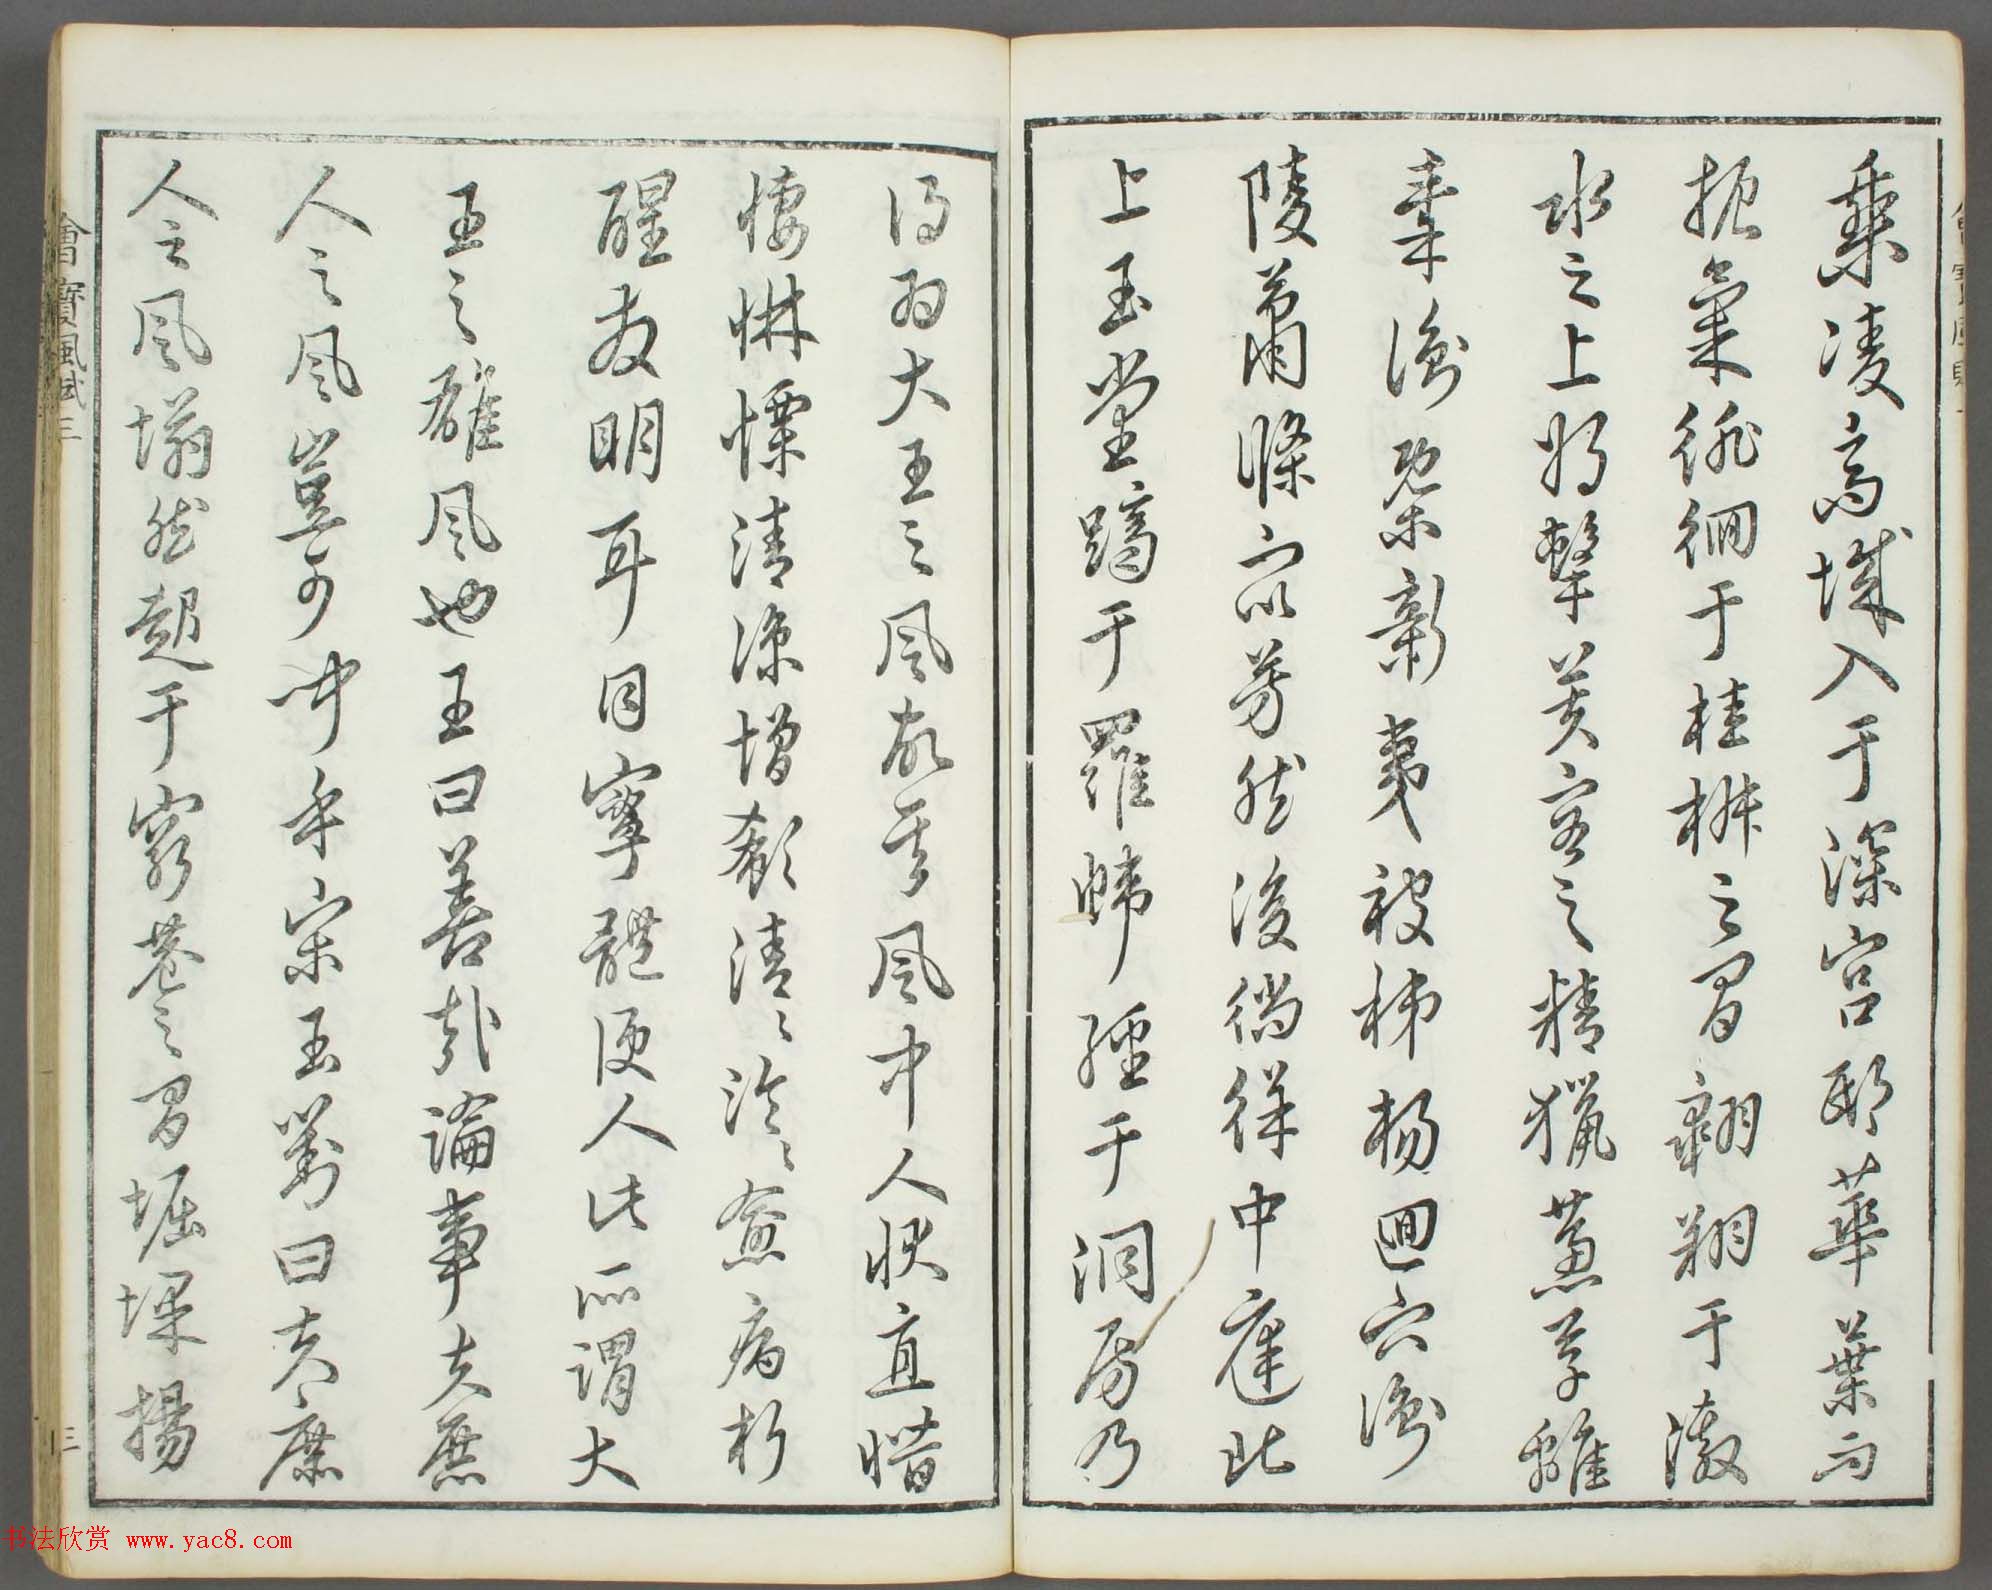 乘凌高城入于深宮邸華葉而
振氣徘徊于桂椒之間翱翔于激
水之上將擊芙蓉之精獵蕙草離
秦衡槩新夷被稊楊迴穴衝
陵蕭條衆芳然後徜徉中庭北
上玉堂躋于羅幃經于洞房乃
得為大王之風故其風中人狀直憯
悽惏慄清涼增欷清々泠々愈病析
酲發明耳目寧體便人此所謂大
王之雄風也王曰善哉論事夫庶
人之風豈可聞乎宋玉對曰夫庶
人之風塕然起于窮巷之間堀堁揚
三
書法欣賞 www.yac8.com